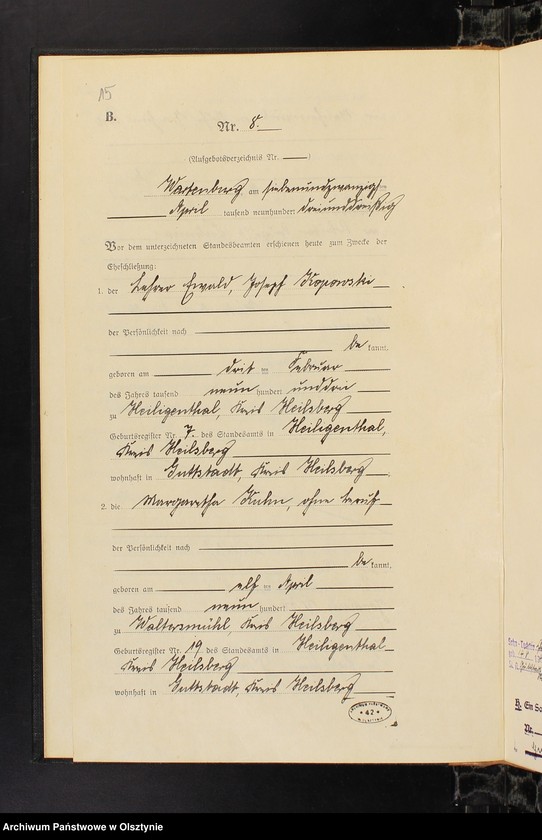 15
B.
Nr. 8.
(Aufgebotsverzeichnis Nr. )
Wartenberg am siebenundzwanzigsten
April tausend neunhundert dreiunddreißig
Vor dem unterzeichneten Standesbeamten erschienen heute zum Zwecke der
Eheschließung:
1. der Lehrer Ewald, Joseph Kopowski
der Persönlichkeit nach
be kannt,
geboren am drit ten Februar
des Jahres tausend neun hundert unddrei
zu Heiligenthal, Kreis Heilsberg
Geburtsregister Nr. 7. des Standesamts in Heiligenthal,
Kreis Heilsberg
wohnhaft in Guttstadt, Kreis Heilsberg ;
2. die Margaretha Kuhn, ohne Beruf
der Persönlichkeit nach
be kannt,
geboren am elf ten April
des Jahres tausend neun hundert
zu Waltersmühl, Kreis Heilsberg
Geburtsregister Nr. 19 des Standesamts in Heiligenthal
Kreis Heilsberg
wohnhaft in Guttstadt, Kreis Heilsberg
* 42 *
B. Ein So
Nr.
Archiwum Państwowe w Olsztynie